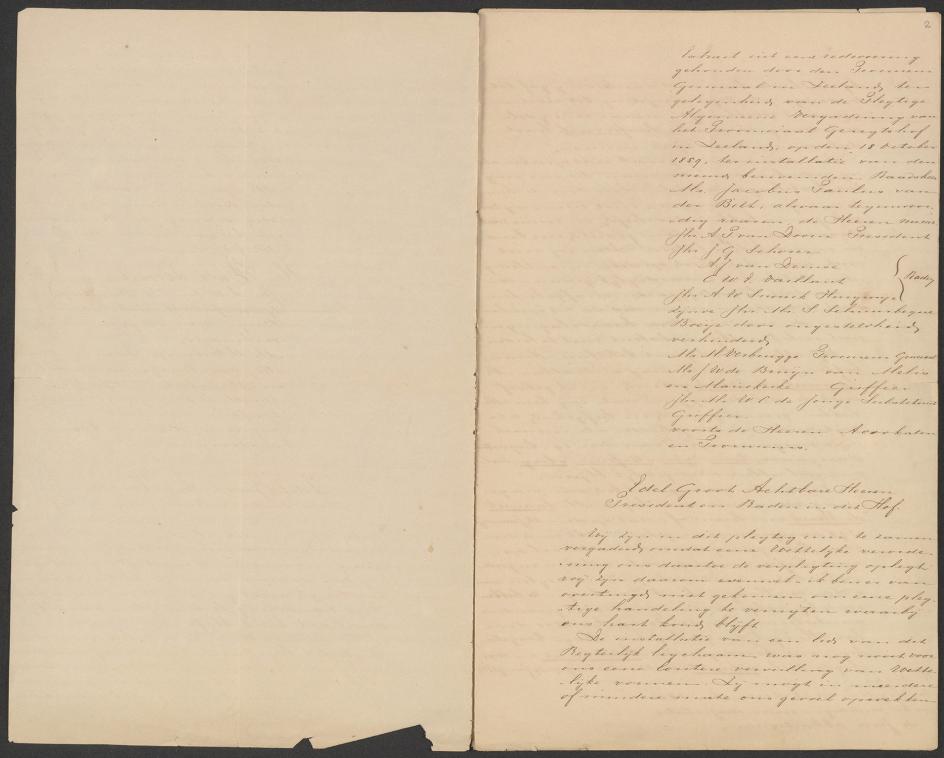 2
Extract uit eene redevoering
gehouden door den Procureur
Generaal in Zeeland, ter
gelegenheid van de Plegtige
Algemeene Vergadering van
het Provinciaal Geregtshof
in Zeeland, op den 18 October
1859, ter installatie van den
nieuw benoemden Raadsheer
Mr. Jacobus Paulus van
den Bilt, alwaar tegenwoor-
dig waren de Heeren
Jhr. A P van Doorn President
Jhr J G Schorer
A J van Deinse
C W F Vaillant
Raden
Jhr A W Snouck Hurgronje
zijnde Jhr. Mr. S Schuurbeque
Boeye door ongesteldheid
verhinderd
Mr. M Verbrugge Procureur Generaal
Mr J W de Bruijn van Melis
en Mariekerke Griffier
Jhr Mr. W C de Jonge Substituut
Griffier
voorts de Heeren Advokaten
en Procureurs.
Edel Groot Achtbare Heeren
President en Raden in dit Hof.
Wij zijn in dit plegtig uur te zamen
vergaderd, omdat eene Wettelijke verorde-
ning ons daartoe de verpligting oplegt
wij zijn daarom evenwel - ik ben er van
overtuigd, niet gekomen om eene pleg-
tige handeling te verrigten waarbij
ons hart koud blijft
De installatie van een lid van dit
Regterlijk ligchaam was nog nooit voor
ons eene loutere vervulling van Wette-
lijke vormen. Zij mogt in meerdere
of mindere mate ons gevoel opwekken